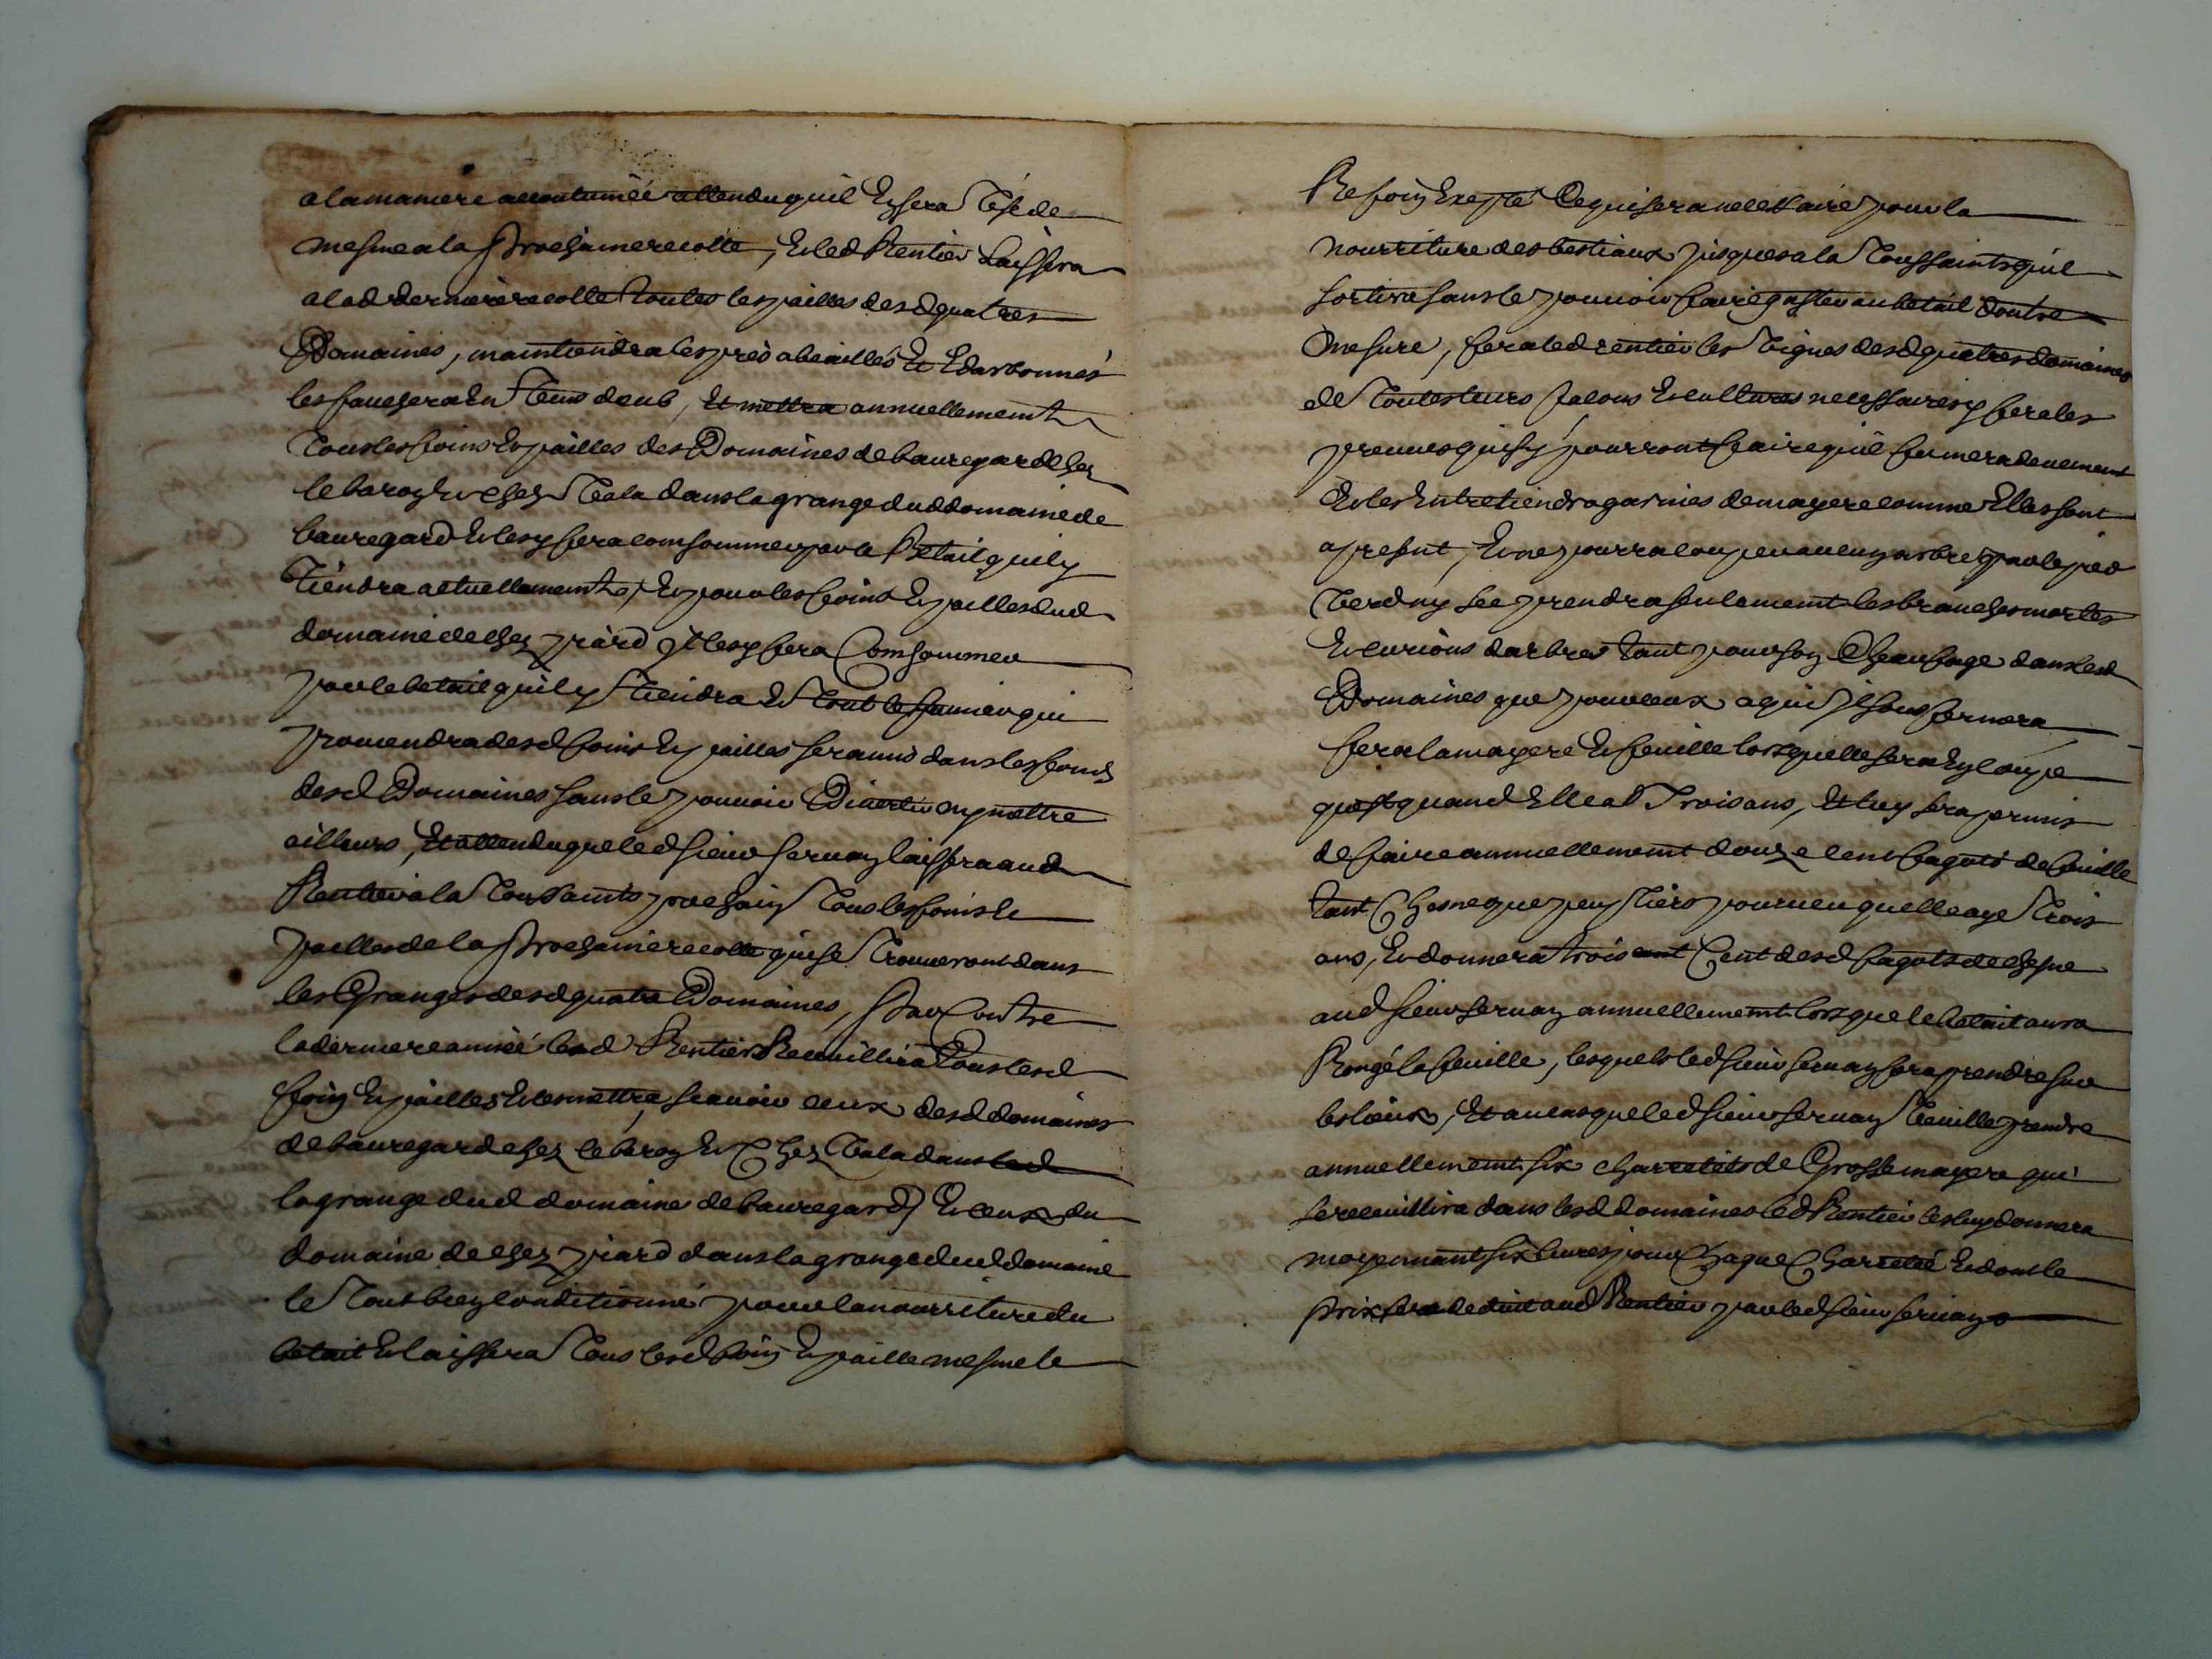 a la maniere accoutumée attendu quil En sera Usé de
mesme a la prochaine recolte, Et led Rentier Laissera
a lad derniere recolte toutes les pailles desd quatres
Domaines, maintiendra les prés abeaillés Et Edarbonnés
les fauchera En tems deub, Et mettra annuellement
tous les foins Et pailles des Domaines de bauregard chez
le baroz Et chez Vala dans la grange dud domaine de
bauregard Et les y fera comsommer par le Betail quil y
tiendra actuellement, Et pour les foins Et pailles dud
domaine de chez piard il les y fera Comsommer
par le betail quil y tiendra Et tout le fumier qui
prouiendra desd foins Et pailles sera mis dans les fonds
desd Domaines sans le pouuoir Diuertir ny mettre
ailleurs, Et attendu que led sieur seruaz laissera aud
Rentier a la Toussaints prochain tous les foins Et
pailles de la prochaine recolte qui se trouueront dans
les Granges desd quatre Domaines, par Contre
la derniere année led Rentier Recuillira tous lesd
foin Et pailles Et les mettra scauoir ceux desd domaines
de bauregard chez le baroz Et Chez Vala dans
la grange dud domaine de bauregard Et ceux du
domaine de chez piard dans la grange dud domaine
le tout bien conditionné pour la nourriture du
betail Et laissera tous lesd foin Et paille mesme le
Refoin Exepté Ce qui sera necessaire pour la
nourriture des bestiaux jusques a la Toussaints quil
sortira sans le pouuoir faire gaster au betail doutre
mesure, fera led rentier les Vignes desd quatres domaines
de toutes leurs facons Et cultures necessaires y fera les
preuues qui sy pourront faire quil fumera deuement
Et les Entretiendra garnies de mayere comme Elles sont
a present, Et ne pourra couper aucuns arbres par le pied
Verd ny sec prendra seulement les branches mortes
Et eurions darbres tant pour son Chaufage dans lesd
Domaines que pour ceux a qui Il sousfermera
fera la mayere Et feuille lorsquelle sera En coupe
quest quand Elle a Trois ans, Et luy sera permis
de faire annuellement douze cent fagots de feuille
tant Chesne que peuptiers pourueu quelle aye trois
ans, Et donnera trois Cent desd fagots de chesne
aud sieur seruaz annuellement lorsque le betail aura
Rongé la feuille, lesquels led sieur seruaz fera prendre sur
les lieux, Et au cas que led sieur seruaz Veuille prendre
annuellement six charretés de Grosse mayere qui
se recuillira dans lesd domaines led Rentier les luy donnera
moyennant six liures pour Chaque Charreté Et dont le
prix sera deduit aud Rentier par led sieur seruaz